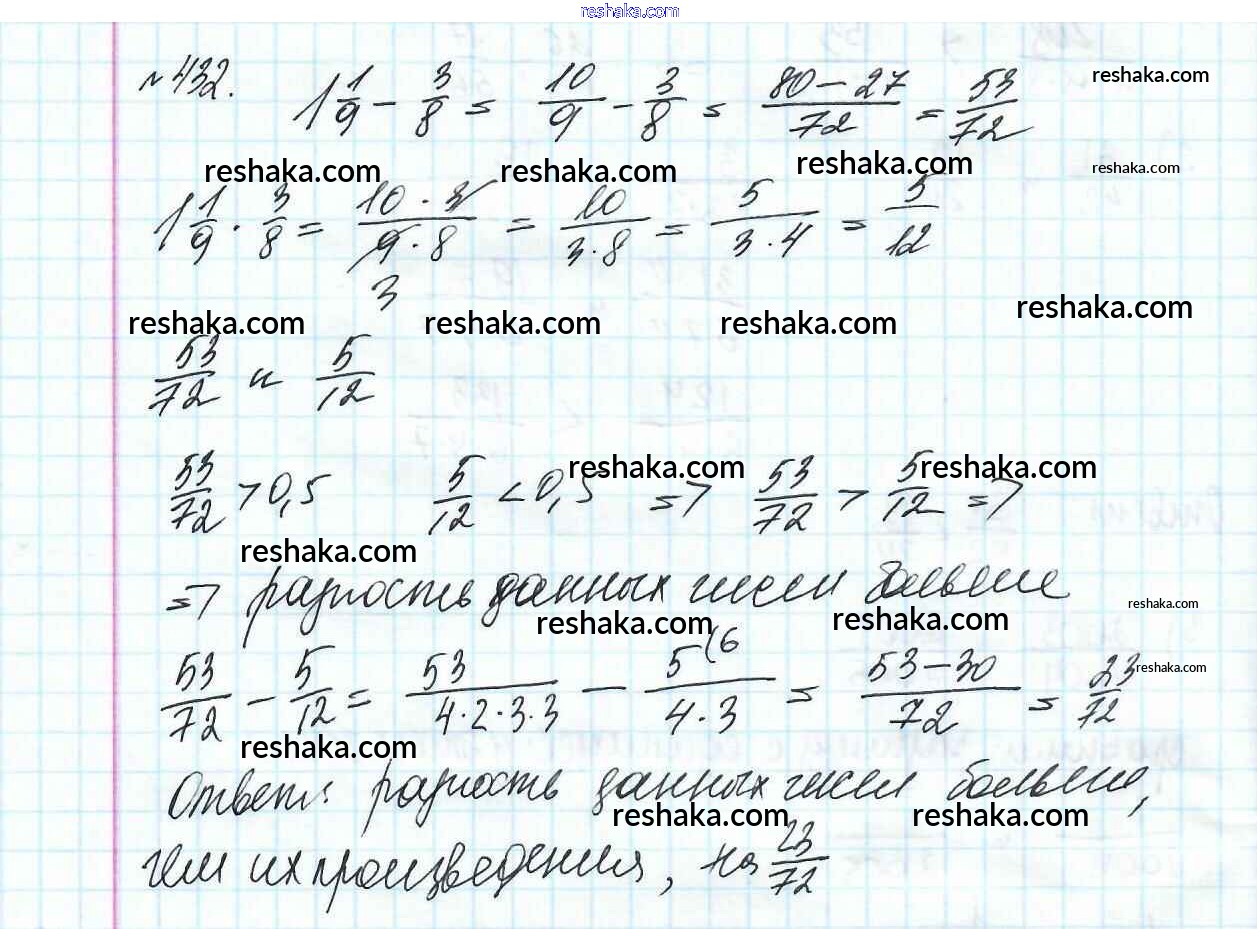 reshaka.com
№432. 1 1/9 - 3/8 = 10/9 - 3/8 = (80-27)/72 = 53/72
reshaka.com
reshaka.com reshaka.com reshaka.com
reshaka.com
1 1/9 · 3/8 = (10 · 3)/(9 · 8) = 10/(3·8) = 5/(3·4) = 5/12
3
reshaka.com
reshaka.com reshaka.com reshaka.com
53/72 и 5/12
reshaka.com reshaka.com
53/72 > 0,5 5/12 < 0,5 => 53/72 > 5/12 =>
reshaka.com
=> разность данных чисел больше
reshaka.com
reshaka.com reshaka.com
53/72 - 5/12 = 53/(4·2·3·3) - 5(6/(4·3) = (53-30)/72 = 23/72
reshaka.com
reshaka.com
Ответ: разность данных чисел больше,
reshaka.com reshaka.com
чем их произведения, на 23/72